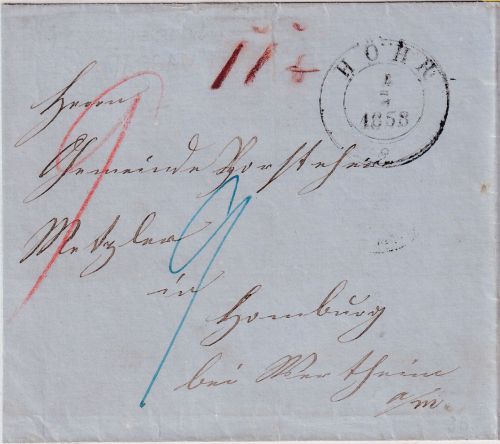 HÖHR
1858
Herrn
Gemeinde Vorsteher
Metzler
in
Homburg
bei Wertheim
a/m.
9
9